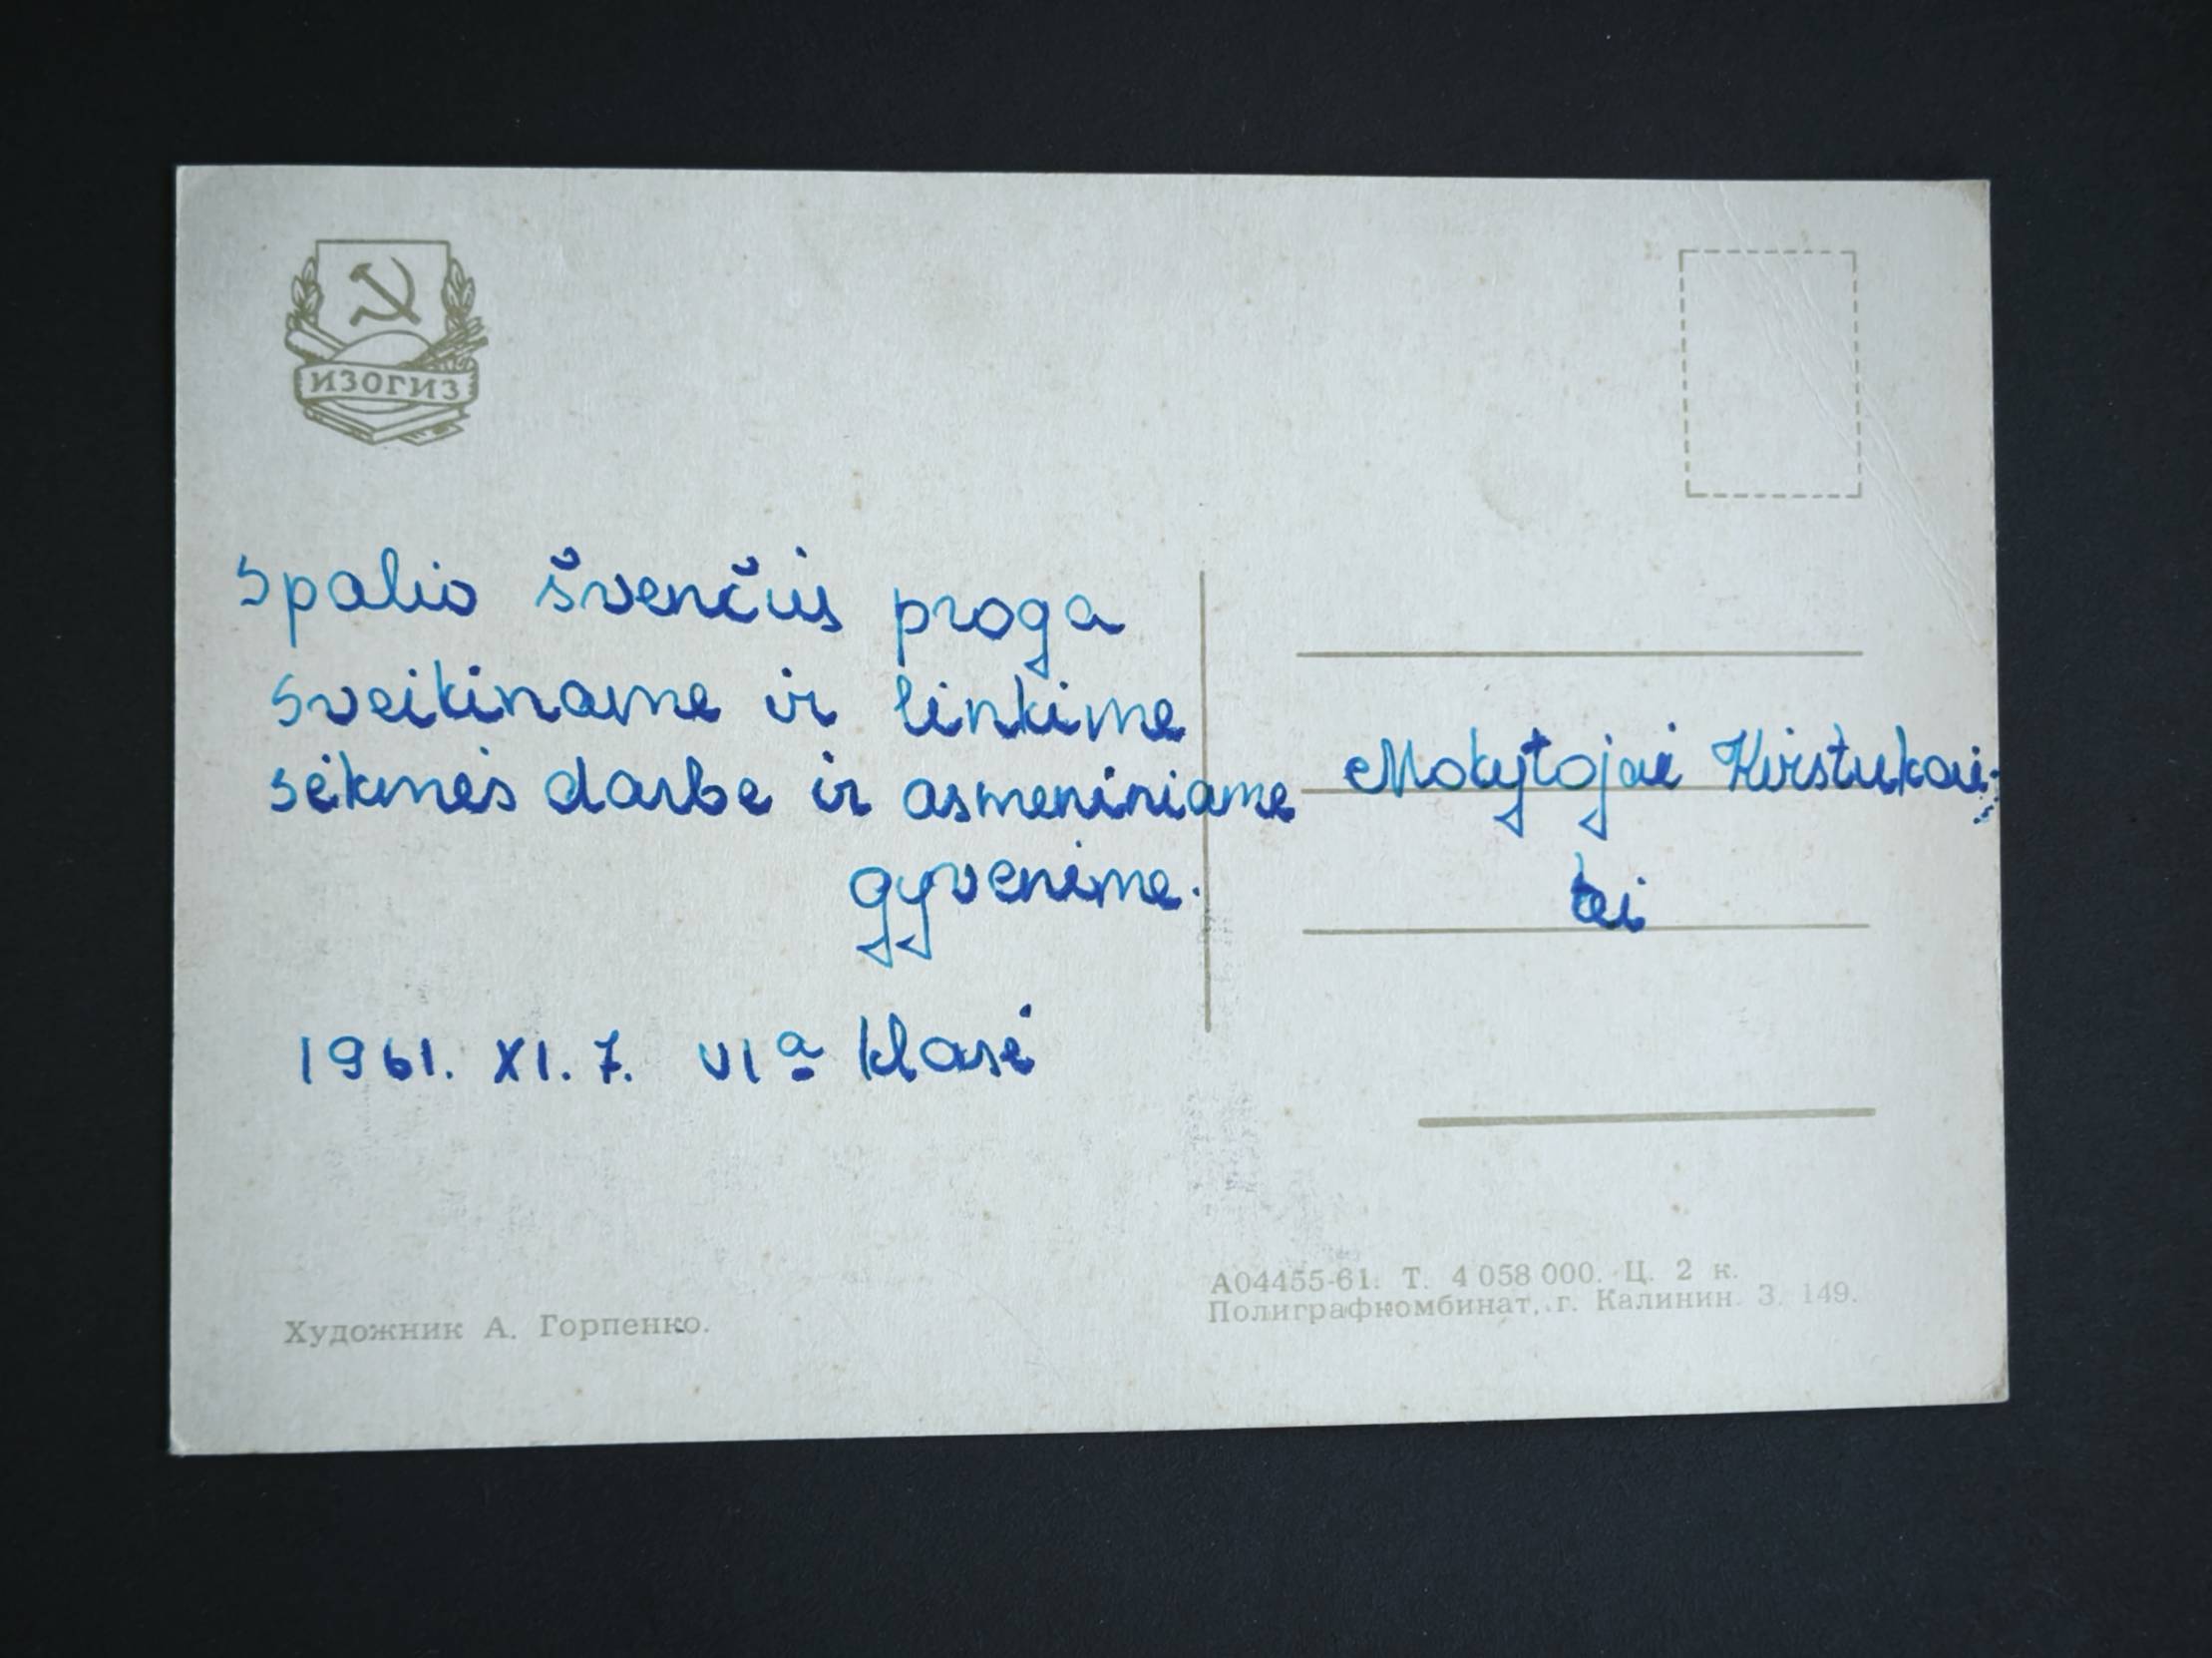 ИЗОГИЗ
Spalio švenčių proga
sveikiname ir linkime
sėkmės darbe ir asmeniniame
gyvenime.
1961. XI. 7. VIa klasė
Mokytojai Kirstukai-
tei
Художник А. Горпенко.
А04455-61. Т. 4 058 000. Ц. 2 к.
Полиграфкомбинат, г. Калинин. З. 149.